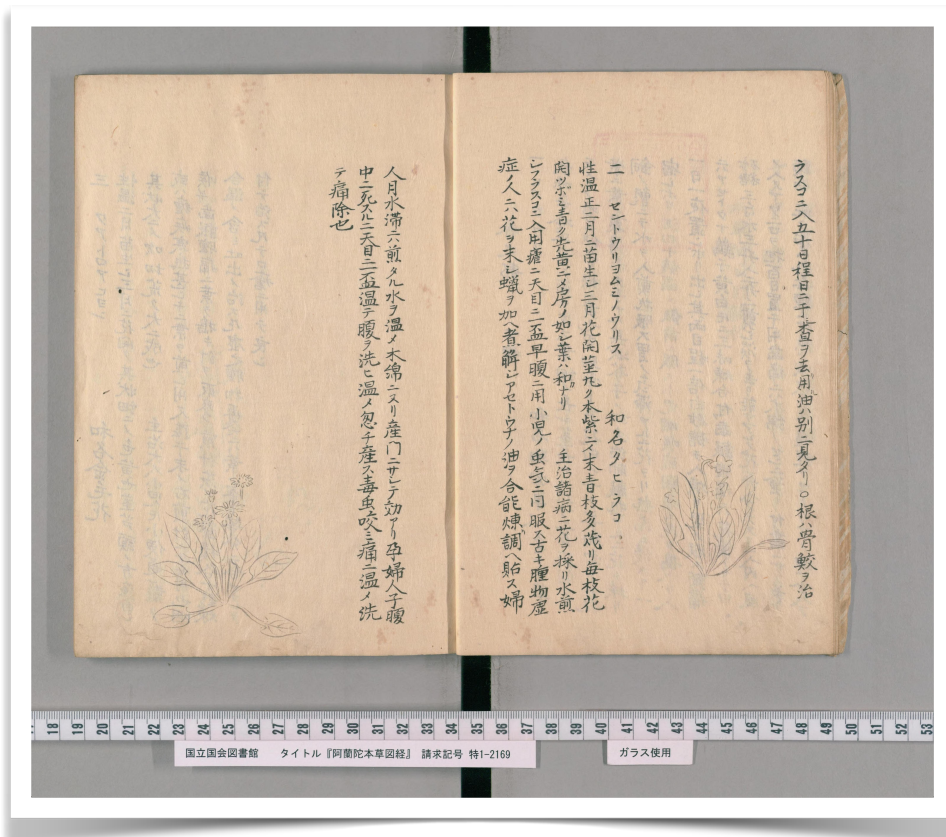 ラスコニ入五十日程日ニ干査ヲ去用油ハ別ニ見タリ○根ハ骨鯁ヲ治
二 セントウリヨムミノウリス 和名タヒラコ
性温正二月ニ苗生シ三月花開茎丸ク本紫ニメ末青枝多茂リ毎枝花
開ツボミ青ク先黄ニメ房ノ如シ葉ハ和ナリ 主治諸病ニ花ヲ採リ水煎
シフラスコニ入用瘧ニ天目ニ二盃早腹ニ用小児ノ虫気ニ同服ス古キ腫物虚
症ノ人ニハ花ヲ末シ蝋ヲ加ヘ煮解シアセトウナノ油ヲ合能煉調ヘ貼ス婦
人月水滞ニ六煎タル水ヲ温メ木綿ニヌリ産門ニサシテ効アリ孕婦人子腹
中ニ死スルニ天目ニ二盃温テ腹ヲ洗ヒ温メ忽チ産ス毒虫咬ミ痛ニ温メ洗
テ痛除也
18 19 20 21 22 23 24 25 26 27 28 29 30 31 32 33 34 35 36 37 38 39 40 41 42 43 44 45 46 47 48 49 50 51 52 53
国立国会図書館 タイトル『阿蘭陀本草図経』 請求記号 特1-2169
ガラス使用